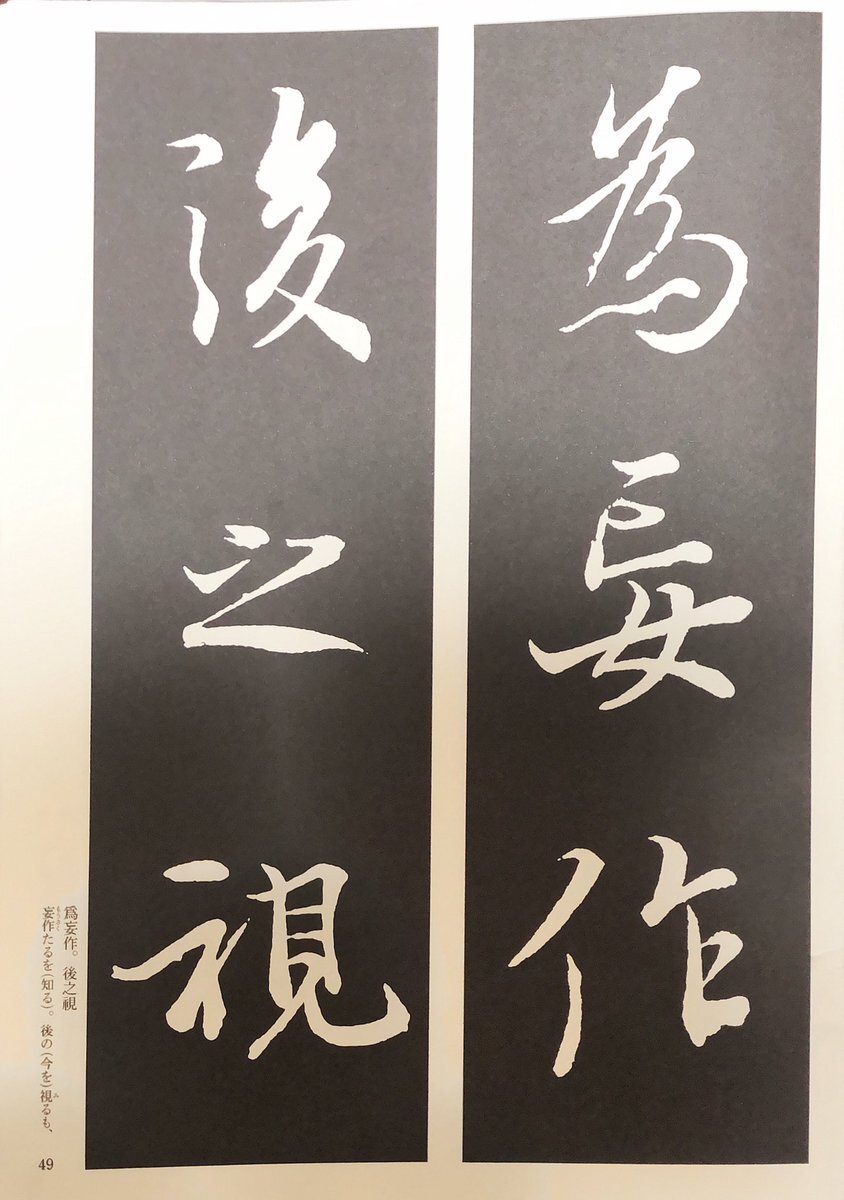 為妄作
後之視
爲妄作。後之視
妄作たるを(知る)。後の(今を)視るも、
もうさく
み
49